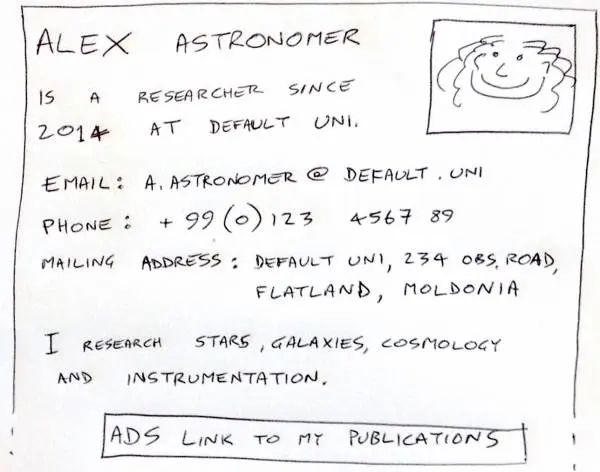 ALEX ASTRONOMER
IS A RESEARCHER SINCE
2014 AT DEFAULT UNI.
EMAIL: A.ASTRONOMER@DEFAULT.UNI
PHONE: +99(0)123 4567 89
MAILING ADDRESS: DEFAULT UNI, 234 OBS. ROAD,
FLATLAND, MOLDONIA
I RESEARCH STARS, GALAXIES, COSMOLOGY
AND INSTRUMENTATION.
ADS LINK TO MY PUBLICATIONS